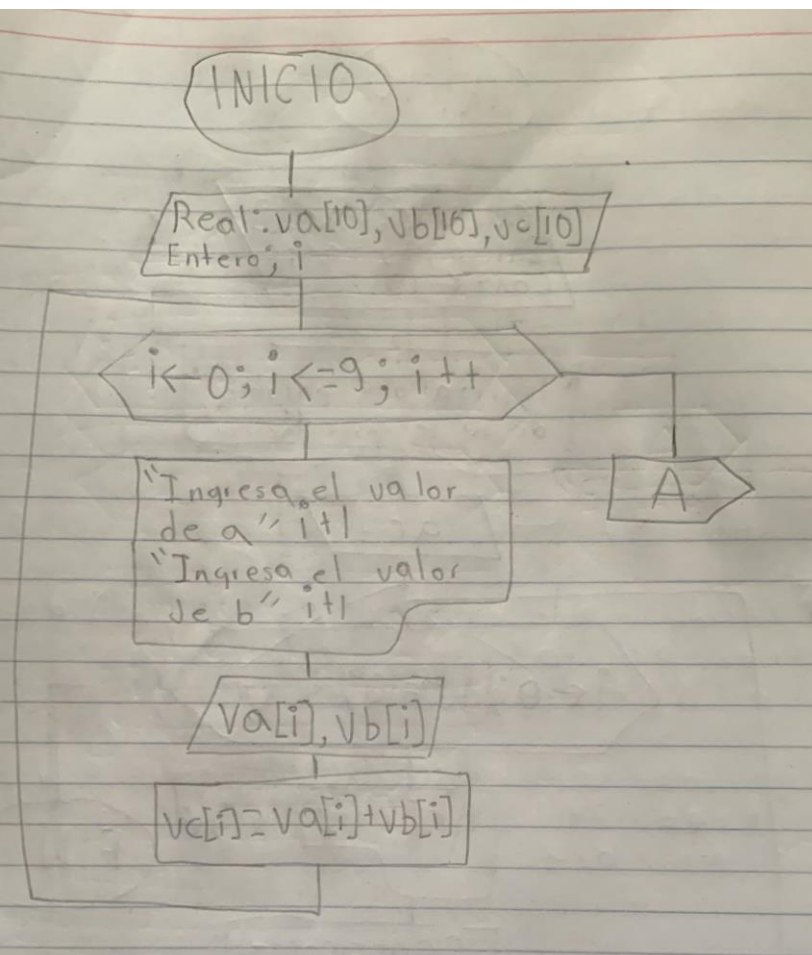 INICIO
Real: va[10], vb[10], vc[10]
Entero; i
i<-0; i<=9; i++
"Ingresa el valor
de a" i+1
"Ingresa el valor
de b" i+1
A
va[i], vb[i]
vc[i]=va[i]+vb[i]